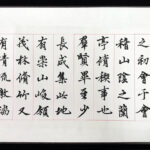 之初會于會
稽山陰之蘭
亭脩禊事也
羣賢畢至少
長咸集此地
有崇山峻領
茂林脩竹又
有清流激湍